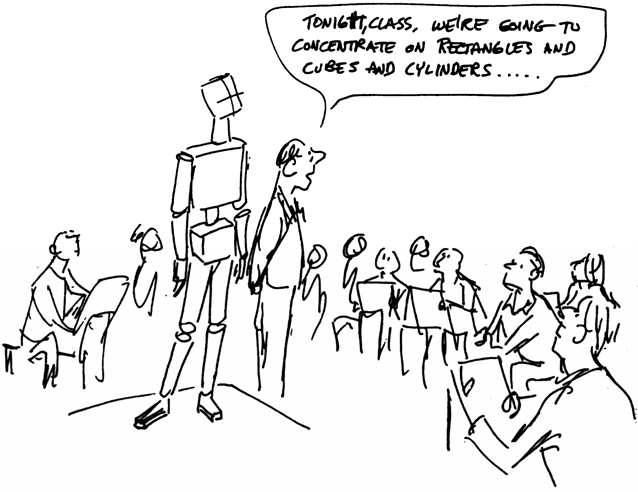 TONIGHT, CLASS, WE'RE GOING TO
CONCENTRATE ON RECTANGLES AND
CUBES AND CYLINDERS.....